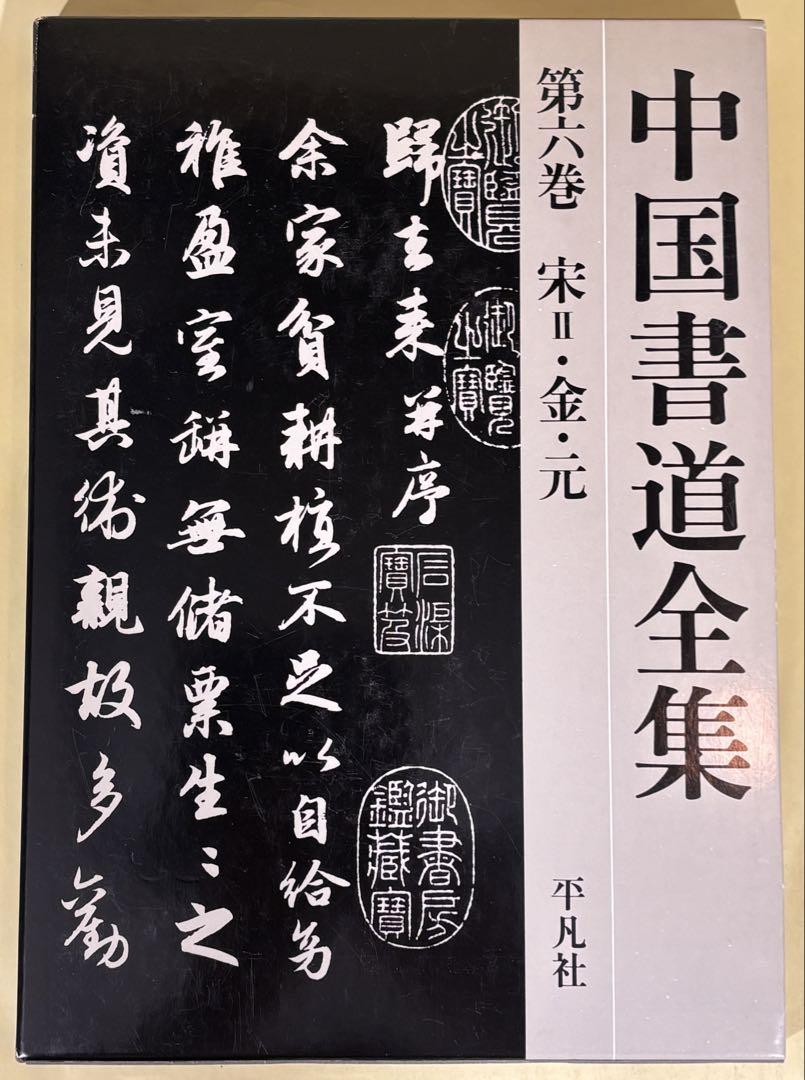 中国書道全集
第六巻 宋II・金・元
平凡社
御覽
之寶
歸去来并序
石渠
寶笈
御書房
鑑藏寶
余家貧耕植不足以自給幼
稚盈室缾無儲粟生〻之
資未見其術親故多勸